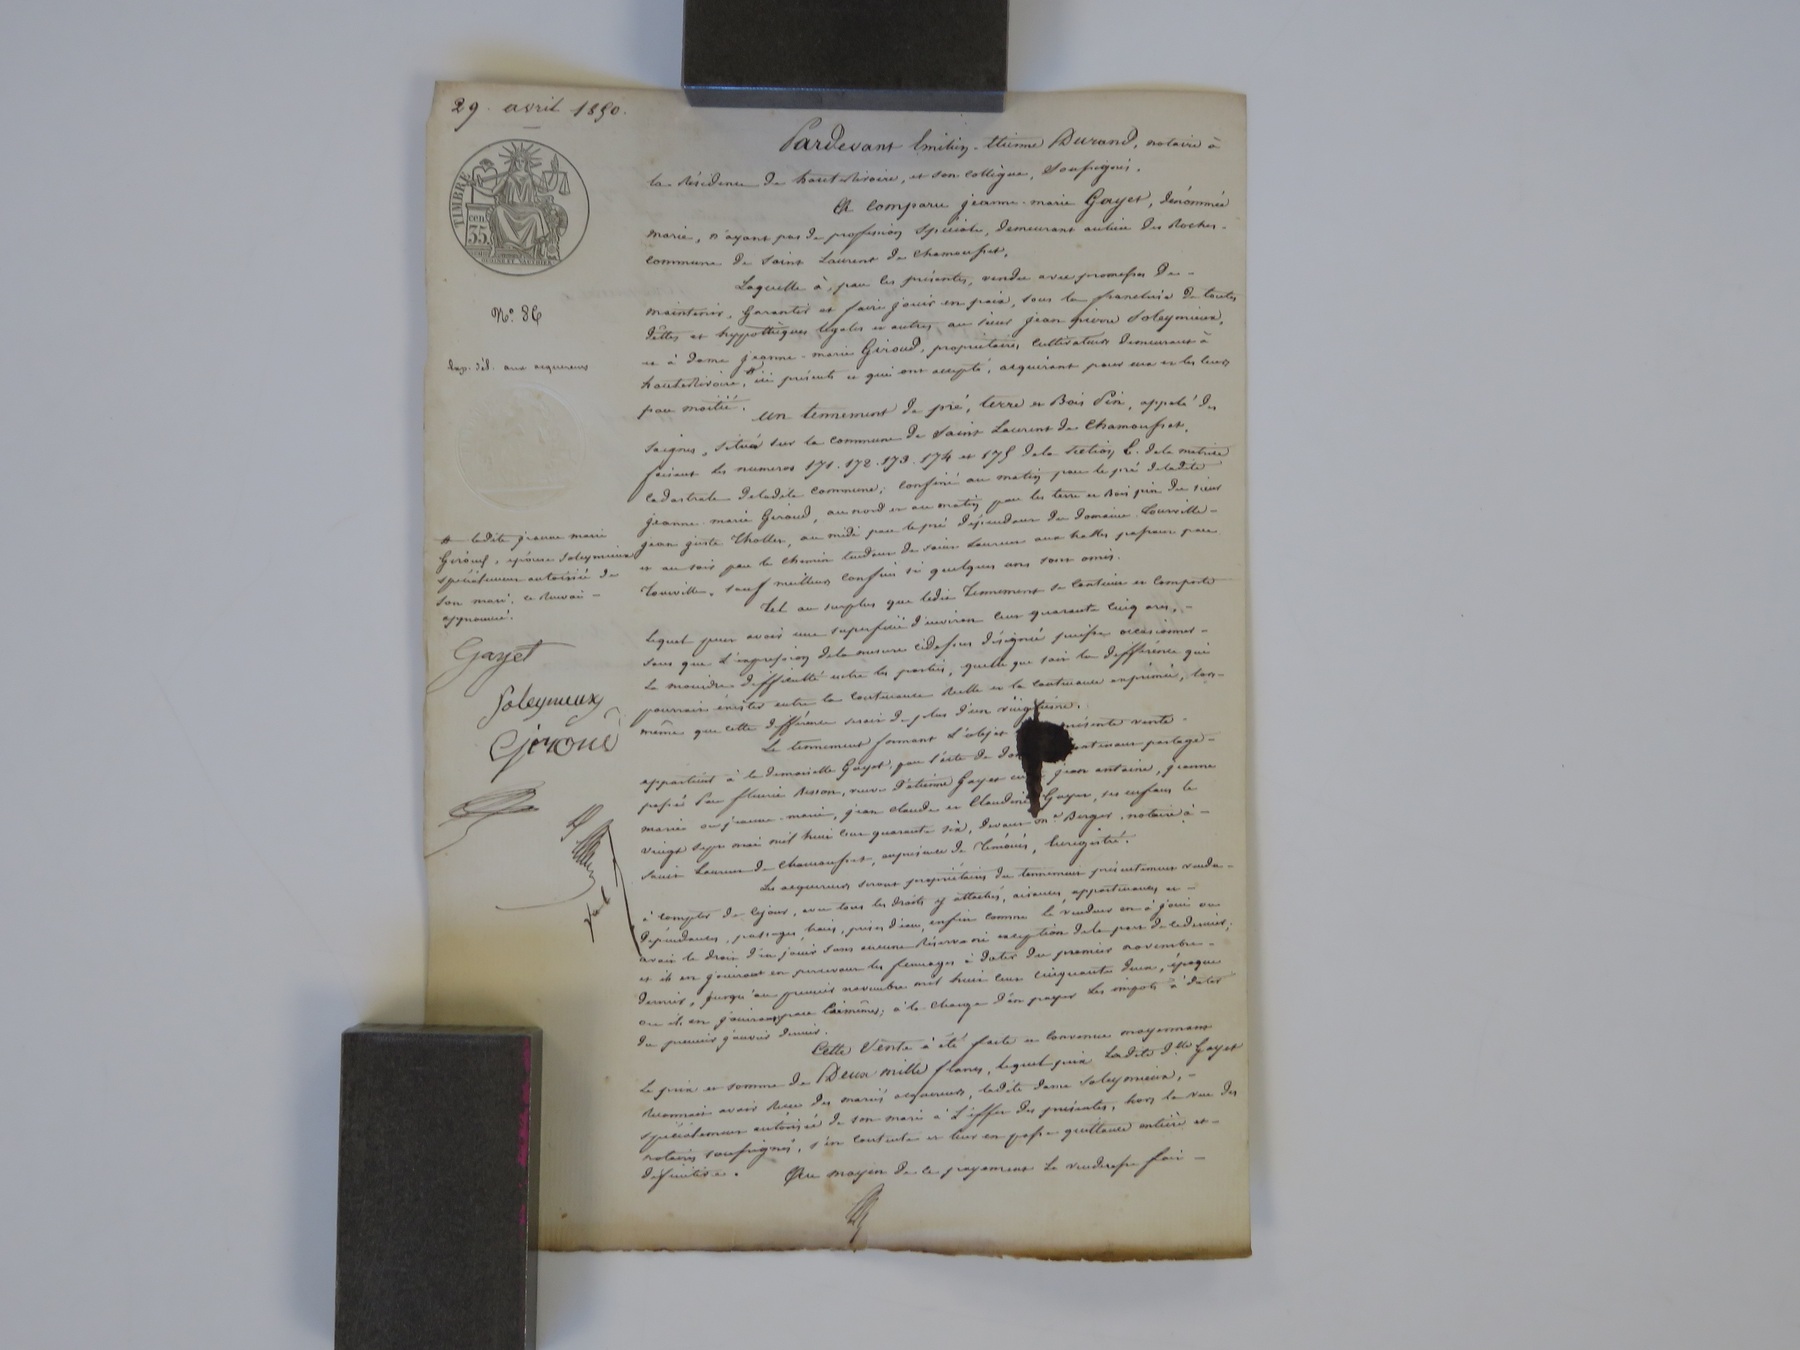 29. avril 1850.
TIMBRE
cen.
35
N.° 36
Exp. dél. aux acquéreurs
Pardevant Emilien-Etienne Durand, notaire à
la Résidence de hauterivoire, et son collègue, Soussignés.
Et comparu jeanne-marie Gayet, dénommée
marie, n'ayant pas de profession spéciale, demeurant au lieu des Roches-
commune de Saint Laurent de Chamousset,
Laquelle à, par les présentes, vendu avec promesses de-
maintenir, garantir et faire jouir en paix, sous la franchise de toutes
dettes et hyppothèques légales et autres, au sieur jean pierre Soleymieux,
et à dame jeanne-marie Giroud, propriétaires cultivateurs demeurant à
hauterivoire, # ici présents et qui ont accepté, acquérant pour eux et les leurs
par moitié.
Un tennement de pré, terre et Bois Pin, appelé des
Saignes, situé sur la commune de Saint Laurent de Chamousset,
faisant les numeros 171. 172. 173. 174 et 175 de la section E. de la matrice
cadastrale deladite commune; confiné au matin par le pré deladite
jeanne-marie Giroud, au nord et au matin par les terre et Bois pin du sieur
jean juste Thollet, au midi par le pré dépendant du domaine Tourville-
et au soir par le chemin tendant de saint Laurent aux halles passant par
Tourville, sauf meilleurs confins si quelques uns sont omis.
Tel au surplus que ledit Tennement se contient et comporte
lequel peut avoir une superficie d'environ cent quarante cinq ares,-
sans que l'expression de la mesure cidessus désignée puisse occasionner-
la moindre difficulté entre les parties, quelle que soit la différence qui
pourrait exister entre la contenance réelle et la contenance exprimée, lors-
même que cette différence serait de plus d'un vingtième.
Le tennement formant l'objet présente vente-
appartient à la demoiselle Gayet, par l'acte de partage-
passé par fleurie Besson, veuve d'etienne Gayet jean antoine, jeanne
marie ou jeanne-marie, jean claude et Claudine Gayet, ses enfans le
vingt sept mai mil huit cent quarante six, devant M.e Berger, notaire à-
Saint Laurent de Chamousset, en présence de témoins, Enregistré.
Les acquéreurs seront propriétaires du tennement présentement vendu-
à compter de cejour, avec tous les droits y attachés, aisances, appartenances et-
dépendances, passages, haies, prises d'eau, enfin comme le vendeur en à joui ou
avait le droit d'en jouir sans aucune Réserve ni exception de la part de ce dernier;
et ils en jouiront en percevant les fermages à dater du premier novembre-
dernier, jusqu'au premier novembre mil huit cent cinquante deux, époque
ou ils en jouiront par eux mêmes; à la charge d'en payer les impots à dater
du premier janvier dernier.
Cette Vente à été faite et convenue moyennant
le prix et somme de Deux mille francs, lequel prix ladite d.lle Gayet
Reconnait avoir Reçu des mariés acquéreurs, ladite dame Soleymieux,-
spécialement autorisée de son mari à l'effet des présentes, hors la vue des
notaires soussignés, s'en contente et leur en passe quittance entière et-
définitive.
Au moyen de ce payement la venderesse fait-
# ladite jeanne marie
Giroud, épouse Soleymieux
spécialement autorisée de
son mari. ce Renvoi-
approuvé.
Gayet
Soleymieux
Giroud